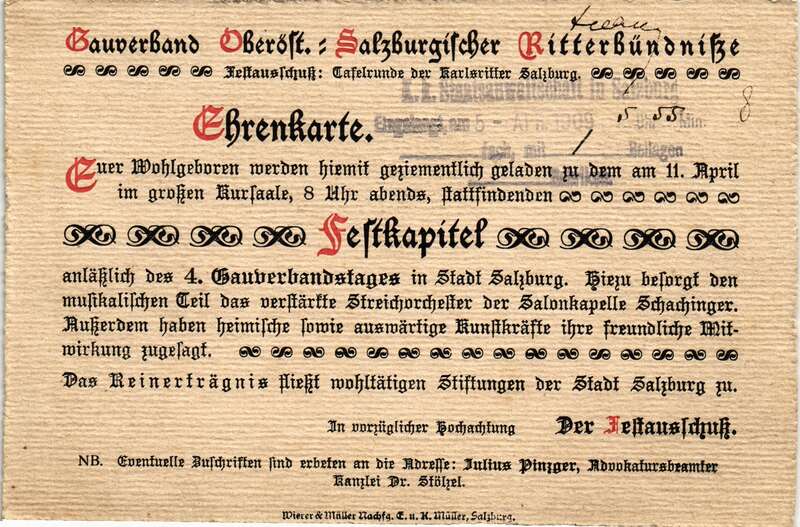 Gauverband Oberöst.=Salzburgischer Ritterbündniße
Festausschuß: Tafelrunde der Karlsritter Salzburg.
K. k. Staatsanwaltschaft in Salzburg
Eingelangt am 6
Uhr Min.
fach, mit Beilagen
8
Ehrenkarte.
Euer Wohlgeboren werden hiemit geziementlich geladen zu dem am 11. April
im großen Kursaale, 8 Uhr abends, stattfindenden
Festkapitel
anläßlich des 4. Gauverbandstages in Stadt Salzburg. Hiezu besorgt den
musikalischen Teil das verstärkte Streichorchester der Salonkapelle Schachinger.
Außerdem haben heimische sowie auswärtige Kunstkräfte ihre freundliche Mit-
wirkung zugesagt.
Das Reinerträgnis fließt wohltätigen Stiftungen der Stadt Salzburg zu.
In vorzüglicher Hochachtung Der Festausschuß.
NB. Eventuelle Zuschriften sind erbeten an die Adresse: Julius Pinzger, Advokatursbeamter
Kanzlei Dr. Stölzel.
Wierer & Müller Nachfg. E. u. K. Müller, Salzburg.